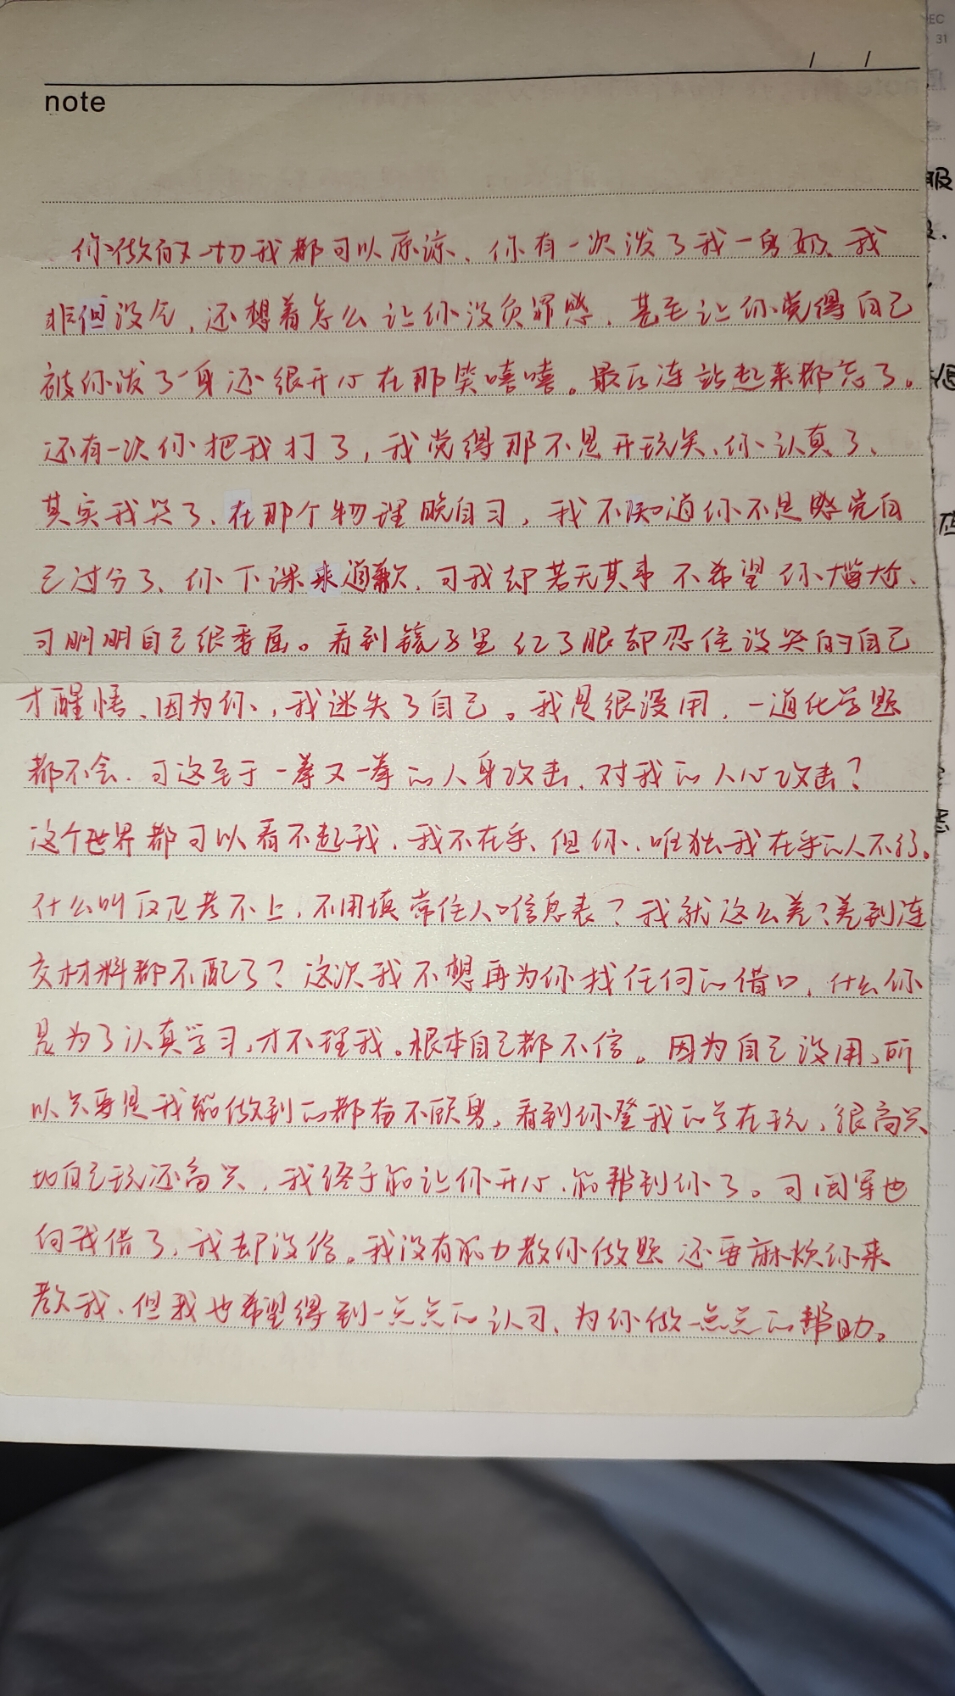 note
你做的一切我都可以原谅、你有一次泼了我一身奶、我
非但没气，还想着怎么让你没负罪感，甚至让你觉得自己
被你泼了一身还很开心在那笑嘻嘻。最后连站起来都忘了。
还有一次你把我打了，我觉得那不是开玩笑、你认真了、
其实我哭了、在那个物理晚自习，我不知道你不是感觉自
己过分了、你下课来道歉、可我却若无其事不希望你尴尬、
可明明自己很委屈。看到镜子里红了眼却忍住没哭的自己
才醒悟、因为你，我迷失了自己。我是很没用，一道化学题
都不会、可这至于一拳又一拳的人身攻击，对我的人心攻击？
这个世界都可以看不起我，我不在乎、但你、唯独我在乎的人不行。
什么叫反正考不上，不用填常住人口信息表？我就这么差？差到连
交材料都不配了？这次我不想再为你找任何的借口，什么你
是为了认真学习，才不理我。根本自己都不信。因为自己没用，所
以只要是我能做到的都奋不顾身。看到你登我的号在玩，很高兴
比自己玩还高兴，我终于能让你开心，能帮到你了。可
向我借了，我却没给。我没有能力教你做题还要麻烦你来
教我、但我也希望得到一点点的认可、为你做一点点的帮助。
服
EC
31